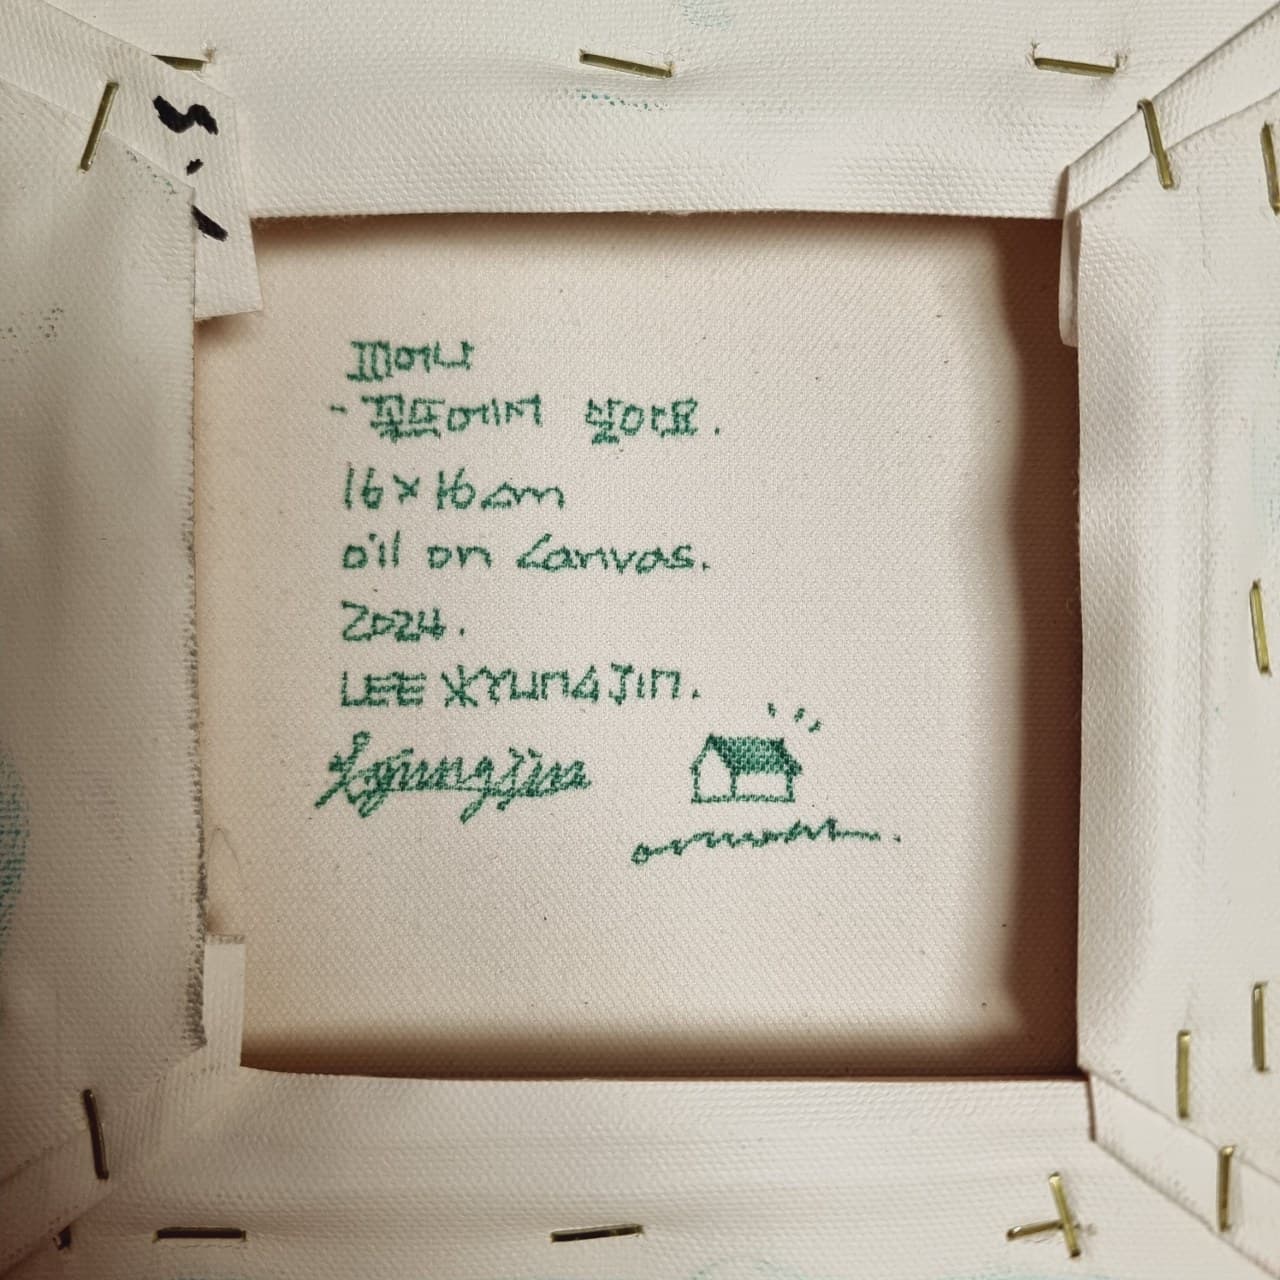 S-1
피어나
- 꽃뜨에서 살아요.
16×16cm
oil on Canvas.
2024.
LEE KYUNGJIN.
Kyungjin